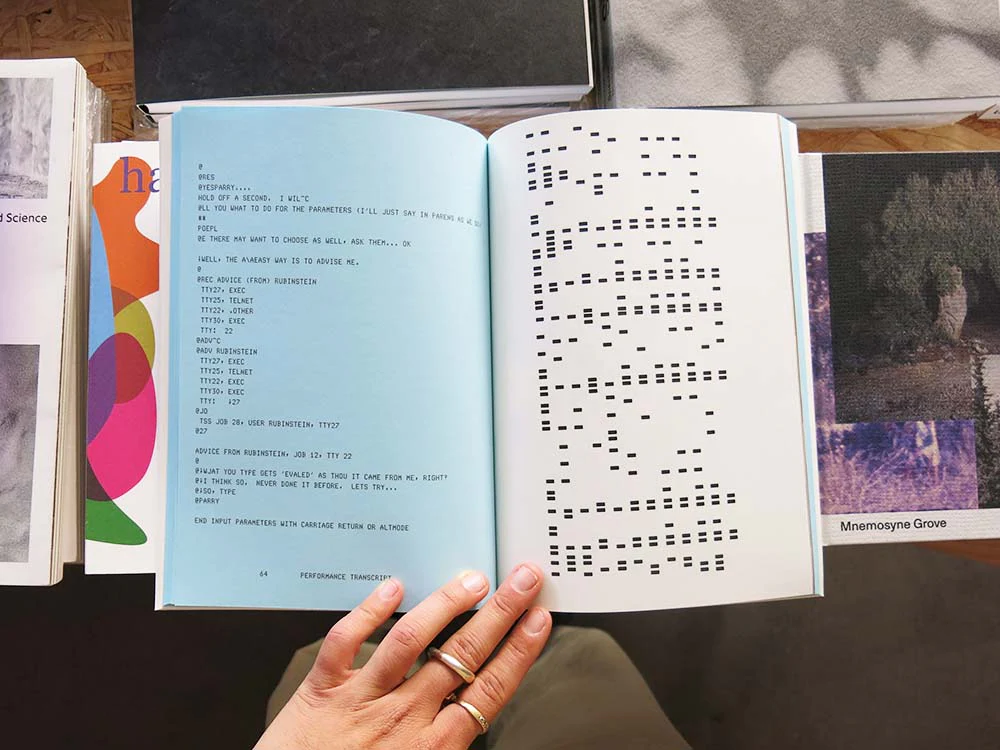 d Science
ha
@
@RES
@YESPARRY....
HOLD OFF A SECOND. I WIL^C
@LL YOU WHAT TO DO FOR THE PARAMETERS (I'LL JUST SAY IN PARENS AS WE GO
##
POEPL
@E THERE MAY WANT TO CHOOSE AS WELL, ASK THEM... OK
;WELL, THE A\AEASY WAY IS TO ADVISE ME.
@
@REC ADVICE (FROM) RUBINSTEIN
TTY27, EXEC
TTY25, TELNET
TTY22, .OTHER
TTY30, EXEC
TTY: 22
@ADV^C
@ADV RUBINSTEIN
TTY27, EXEC
TTY25, TELNET
TTY22, EXEC
TTY30, EXEC
TTY: ;27
@JO
TSS JOB 28, USER RUBINSTEIN, TTY27
@27
ADVICE FROM RUBINSTEIN, JOB 12, TTY 22
@
@;WJAT YOU TYPE GETS 'EVALED' AS THOU IT CAME FROM ME, RIGHT?
@;I THINK SO. NEVER DONE IT BEFORE. LETS TRY...
@;SO, TYPE
@PARRY
END INPUT PARAMETERS WITH CARRIAGE RETURN OR ALTMODE
64 PERFORMANCE TRANSCRIPT
Mnemosyne Grove